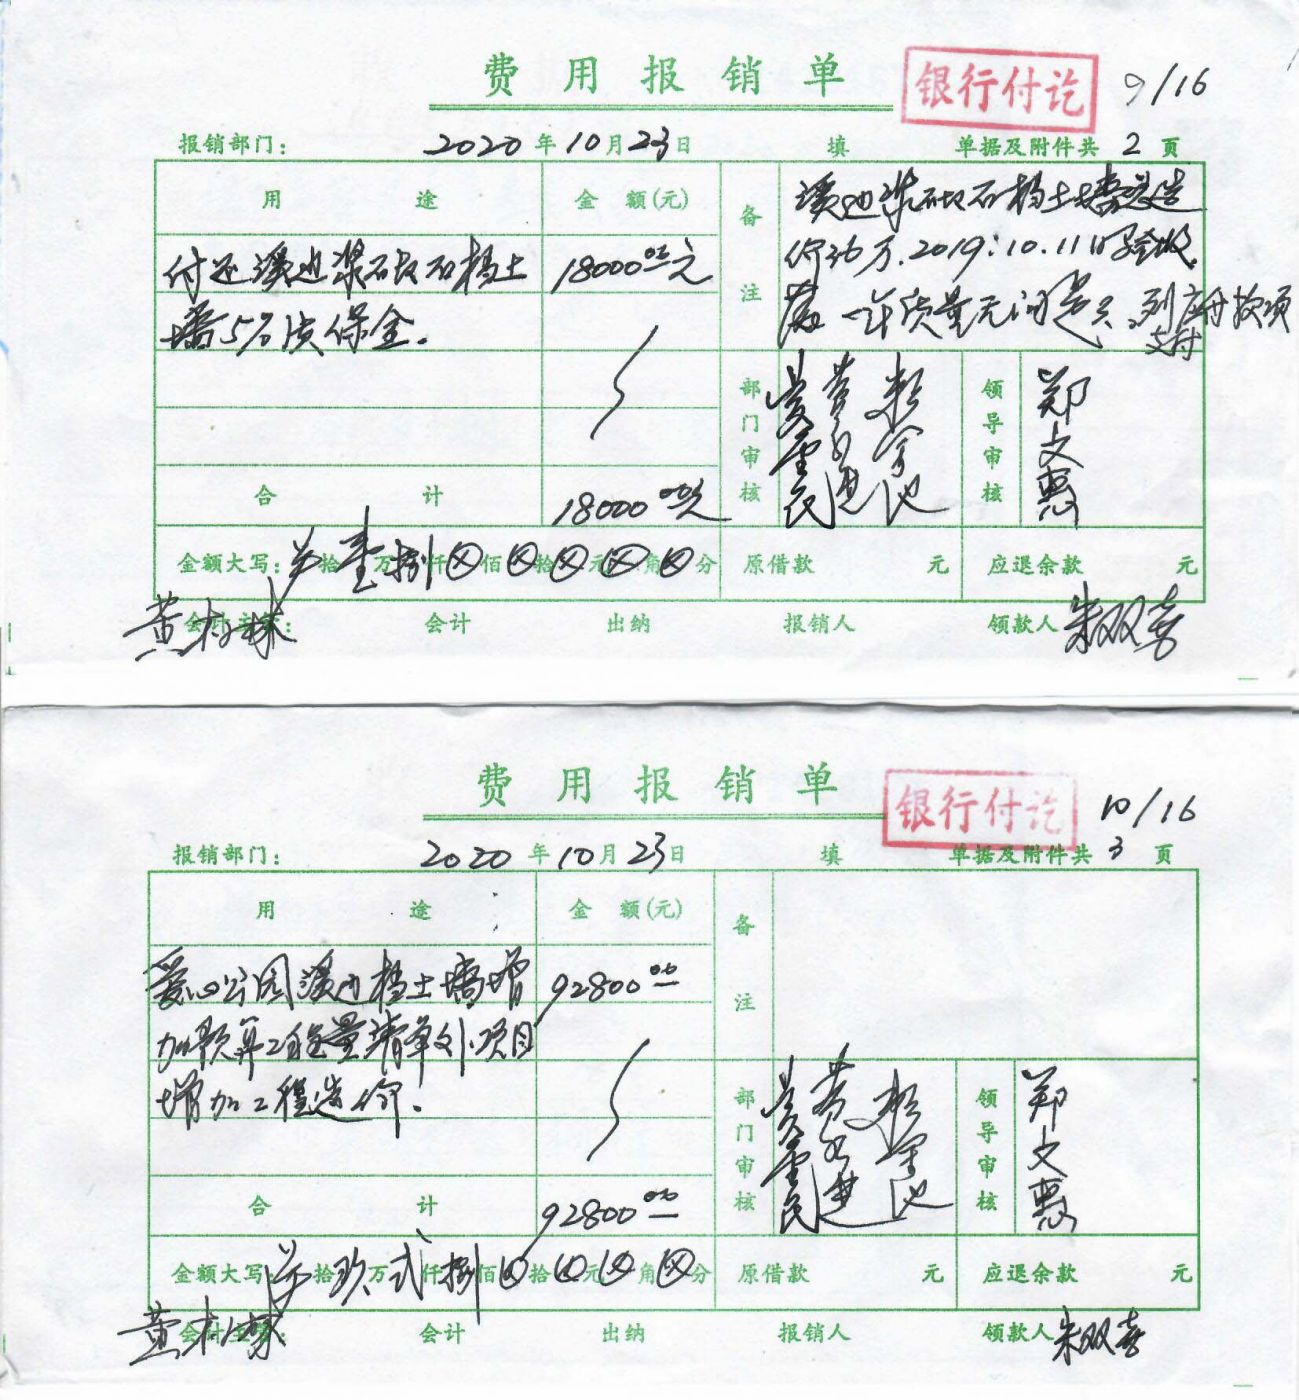 费用报销单
银行付讫
9/16
报销部门： 2020年10月23日 填 单据及附件共 2 页
用途 金额(元) 备注
付还溪边浆砌石挡土 18000.00元
墙5%质保金.
溪边浆砌石挡土墙造
价36万.2019.10.11日验收,
一年质量无问题,到应付款项
支付
部门审核 领导审核 郑文惠
合计 18000.00元
金额大写： 拾壹万捌仟⊗佰⊗拾⊗元⊗角⊗分 原借款 元 应退余款 元
会计主管： 黄林 会计 出纳 报销人 领款人 朱双喜
费用报销单
银行付讫
10/16
报销部门： 2020年10月23日 填 单据及附件共 3 页
用途 金额(元) 备注
爱心公园溪边挡土墙增 92800.00
加预算工程量清单外项目
增加工程造价.
部门审核 领导审核 郑文惠
合计 92800.00
金额大写 拾玖万弍仟捌佰⊗拾⊗元⊗角⊗分 原借款 元 应退余款 元
会计主管： 黄林 会计 出纳 报销人 领款人 朱双喜